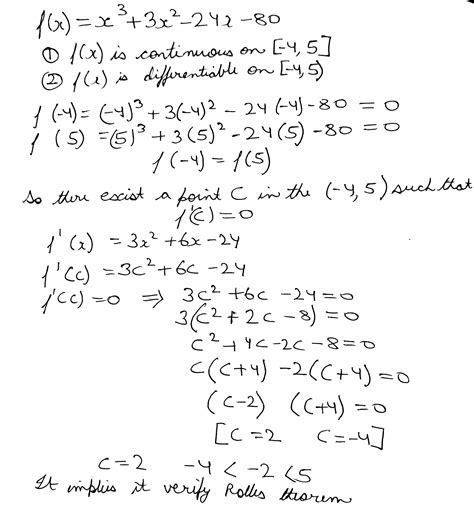 f(x) = x³ + 3x² - 24x - 80
① f(x) is continuous on [-4, 5]
② f(x) is differentiable on [-4, 5)
f(-4) = (-4)³ + 3(-4)² - 24(-4) - 80 = 0
f(5) = (5)³ + 3(5)² - 24(5) - 80 = 0
f(-4) = f(5)
So there excist a point C in the (-4, 5) such that
f'(C) = 0
f'(x) = 3x² + 6x - 24
f'(c) = 3c² + 6c - 24
f'(c) = 0 ⇒ 3c² + 6c - 24 = 0
3(c² + 2c - 8) = 0
c² + 4c - 2c - 8 = 0
c(c+4) - 2(c+4) = 0
(c-2) (c+4) = 0
[c = 2 c = -4]
c = 2 -4 < -2 < 5
It implies it verify Rolles theorem